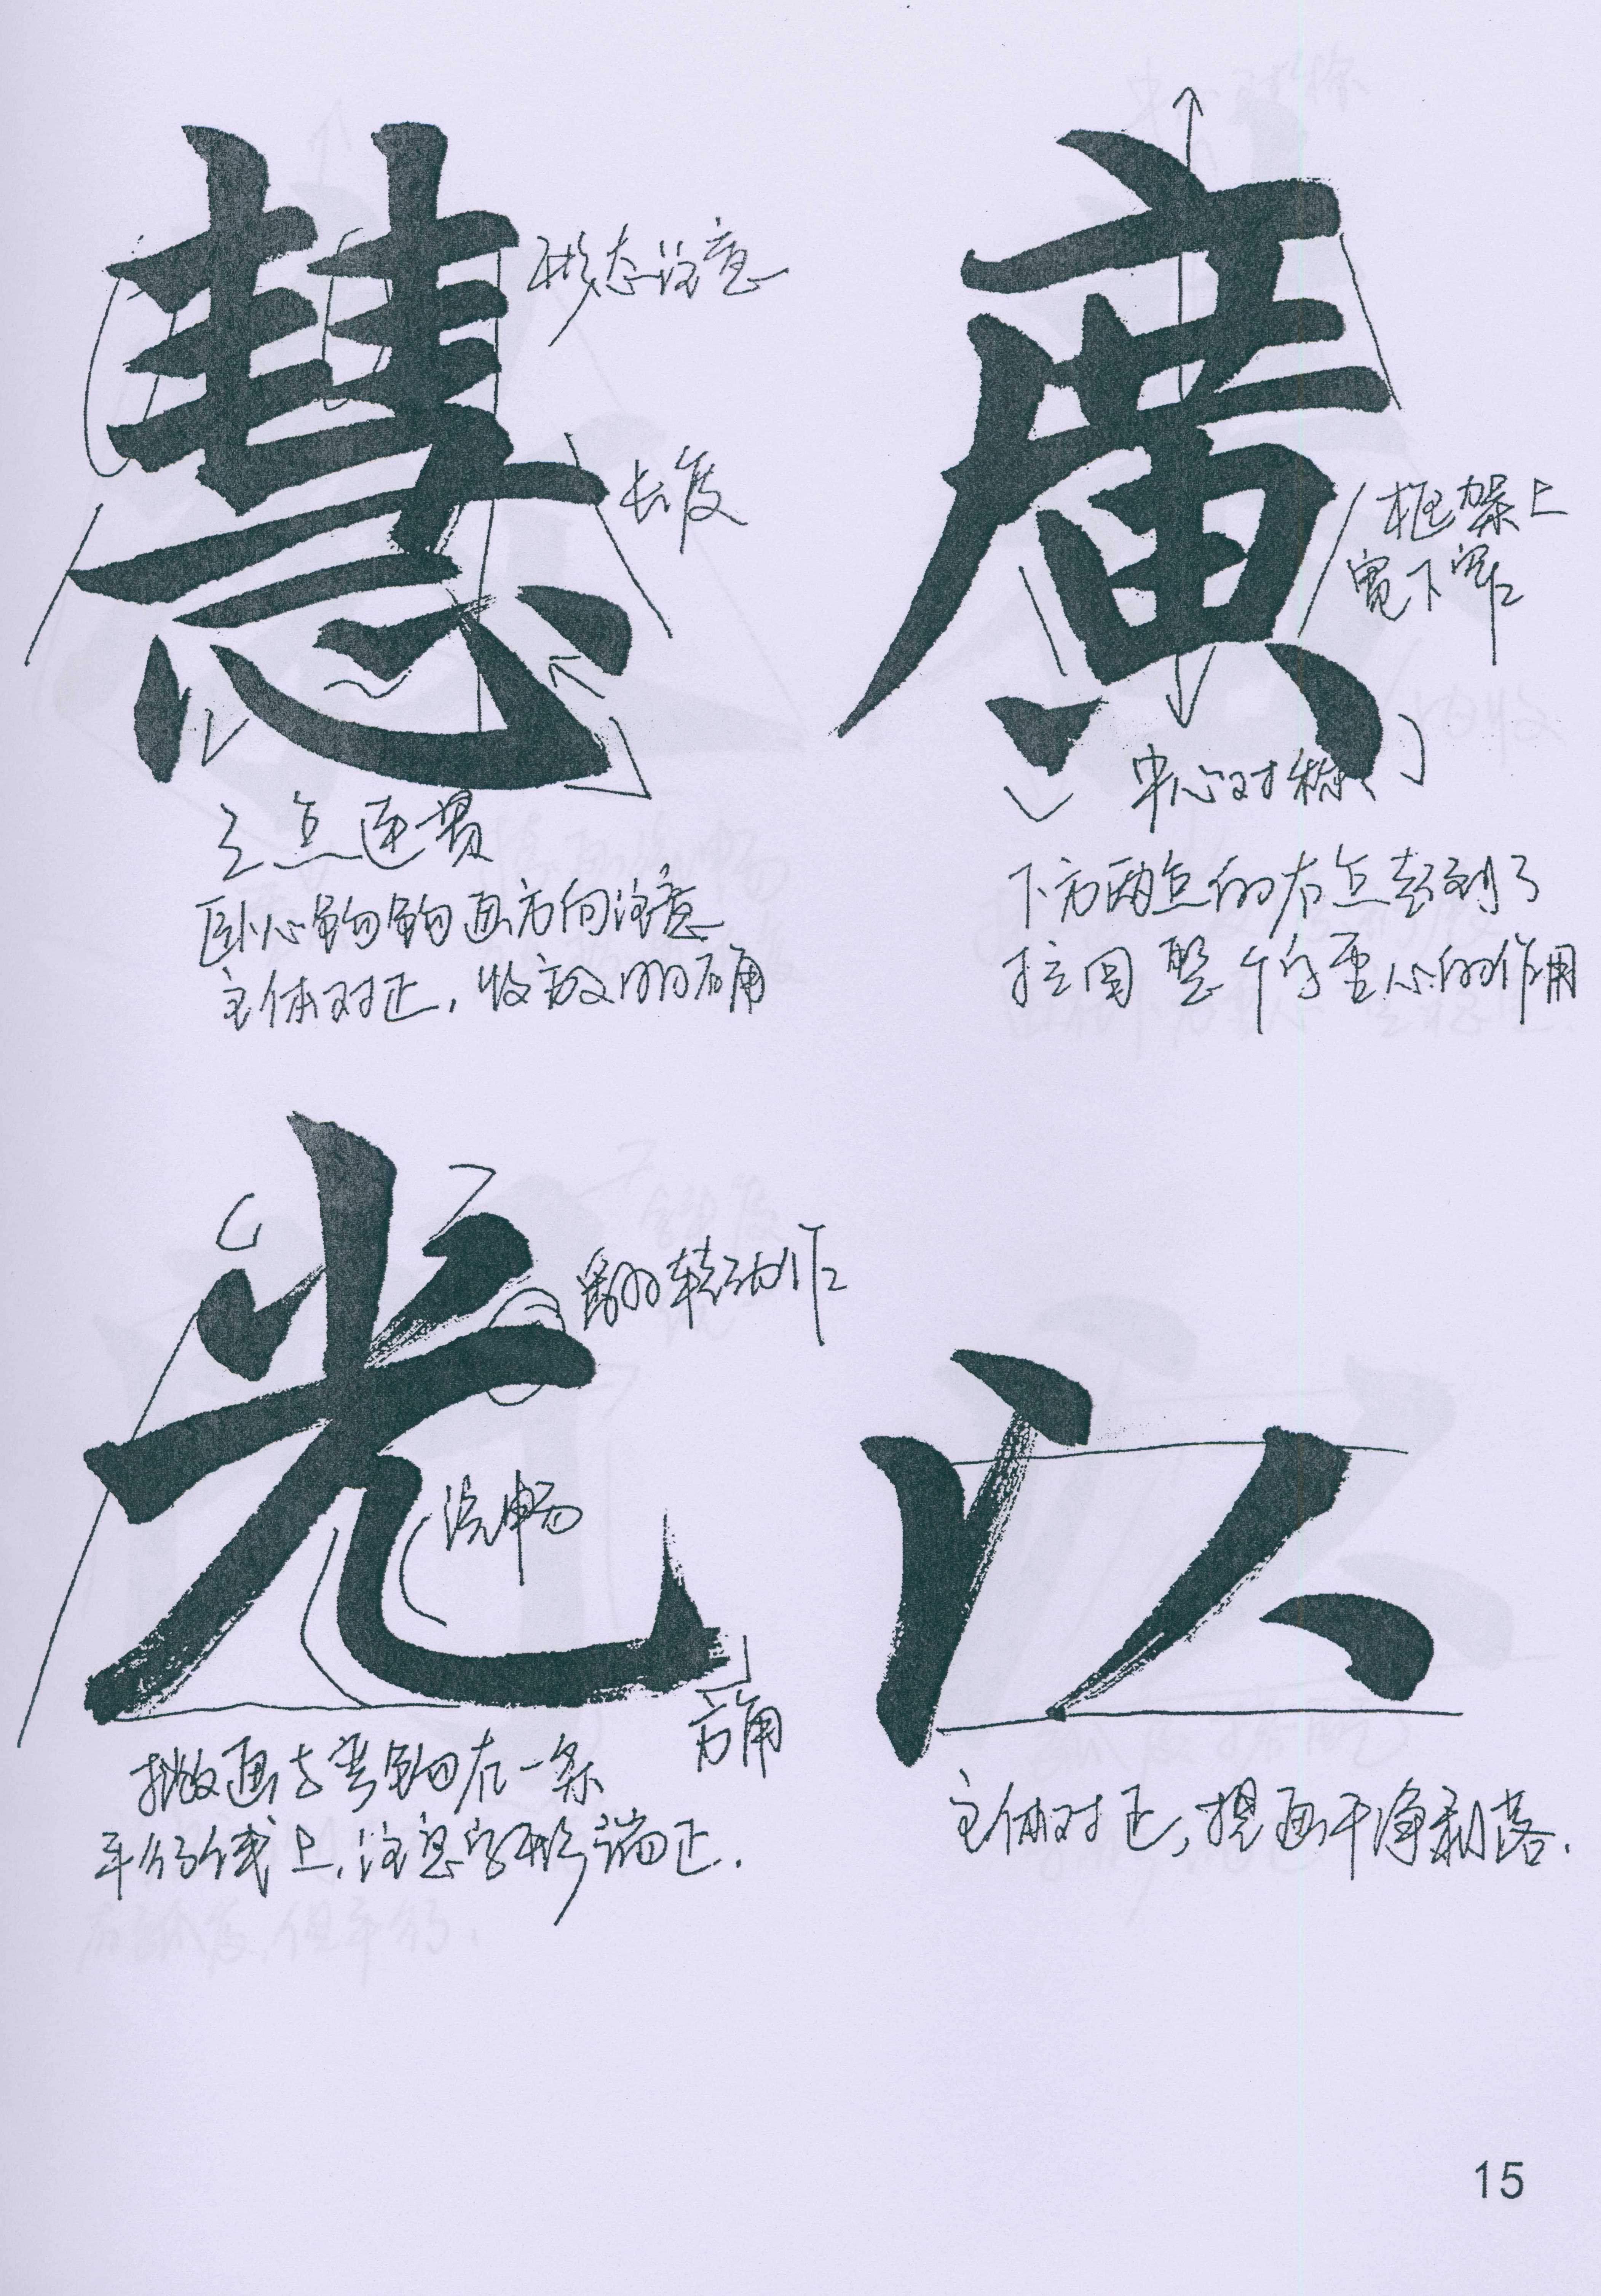 慧
形态注意
长度
三点连贯
卧心钩钩画方向注意
主体对正,收放明确
廣
框架上
宽下窄
中心对称
下方两点的右点起到了
拉回整个字重心的作用
光
翻转动作
流畅
方角
撇画与弯钩在一条
平行线上,注意字形端正.
以
主体对正,提画干净利落.
15